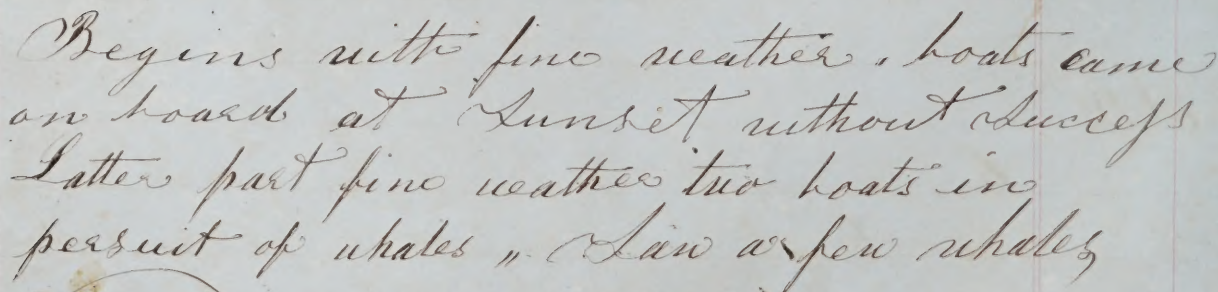 Begins with fine weather. boats came
on board at Sunset without Success
Latter part fine weather two boats in
persuit of whales „ Saw a few whales,